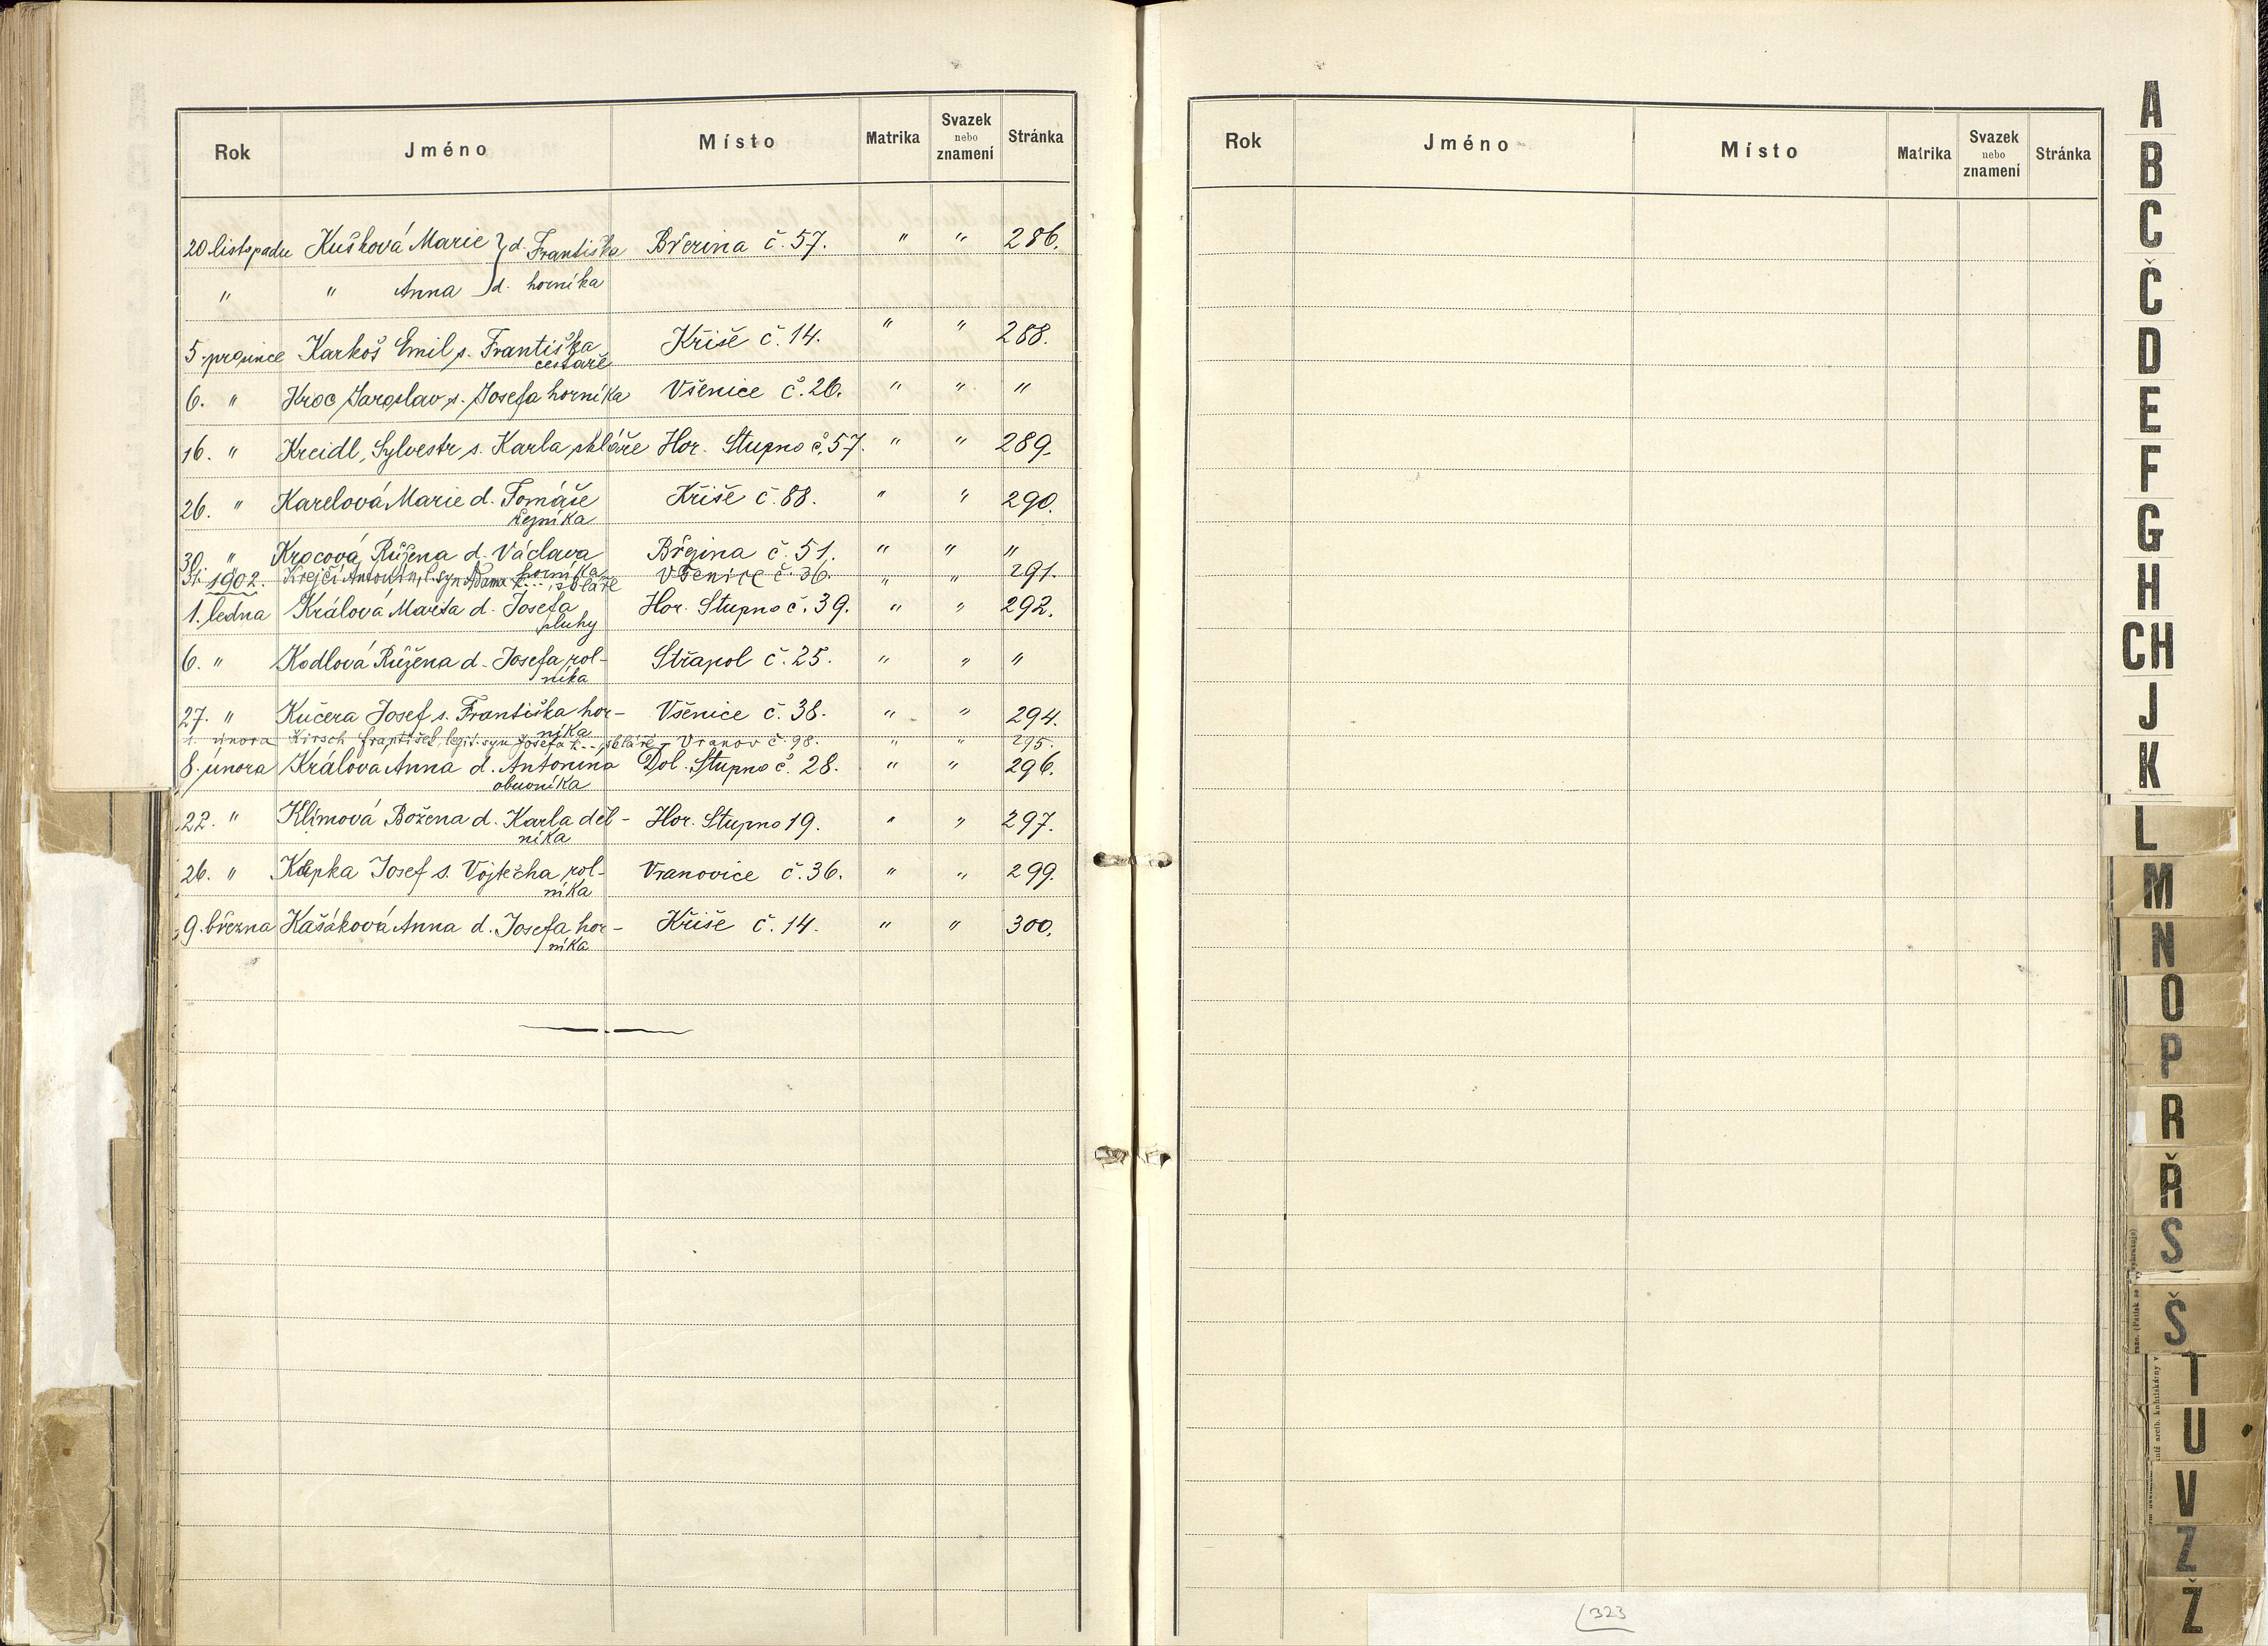 Rok Jméno Místo Matrika Svazek nebo znamení Stránka
20 listopadu Kušková Marie } d. Františka Březina č. 57. " " 286.
" " Anna } d. horníka
5. prosince Karkoš Emil s. Františka Kříše č. 14. " " 288.
cestáře
6. " Kroc Jaroslav s. Josefa horníka Všenice č. 26. " " "
16. " Kreidl, Sylvestr s. Karla skláře Hor. Stupno č. 57. " " 289.
26. " Karelová Marie d. Tomáše Kříše č. 88. " " 290.
řezníka
30. " Krocová Růžena d. Václava Březina č. 51. " " "
horníka
31. " Krejčí Antonín, l. syn Adama K... , skláře Všenice č. 36. " " 291.
1902.
1. ledna Králová Marta d. Josefa Hor. Stupno č. 39. " " 292.
sluhy
6. " Kodlová Růžena d. Josefa rol- Střapol č. 25. " " "
níka
27. " Kučera Josef s. Františka hor- Všenice č. 38. " " 294.
níka
1. února Kirsch František, legit. syn Josefa K.., skláře - Vranov č. 98. " " 295.
8. února Králova Anna d. Antonína Dol. Stupno č. 28. " " 296.
obuvníka
22. " Klímová Božena d. Karla děl- Hor. Stupno 19. " " 297.
níka
26. " Kepka Josef s. Vojtěcha rol- Vranovice č. 36. " " 299.
níka
9. března Kašáková Anna d. Josefa hor- Kříše č. 14. " " 300.
níka
Rok Jméno Místo Matrika Svazek nebo znamení Stránka
323
A
B
C
Č
D
E
F
G
H
CH
J
K
L
M
N
O
P
R
Ř
S
Š
T
U
V
Z
Ž